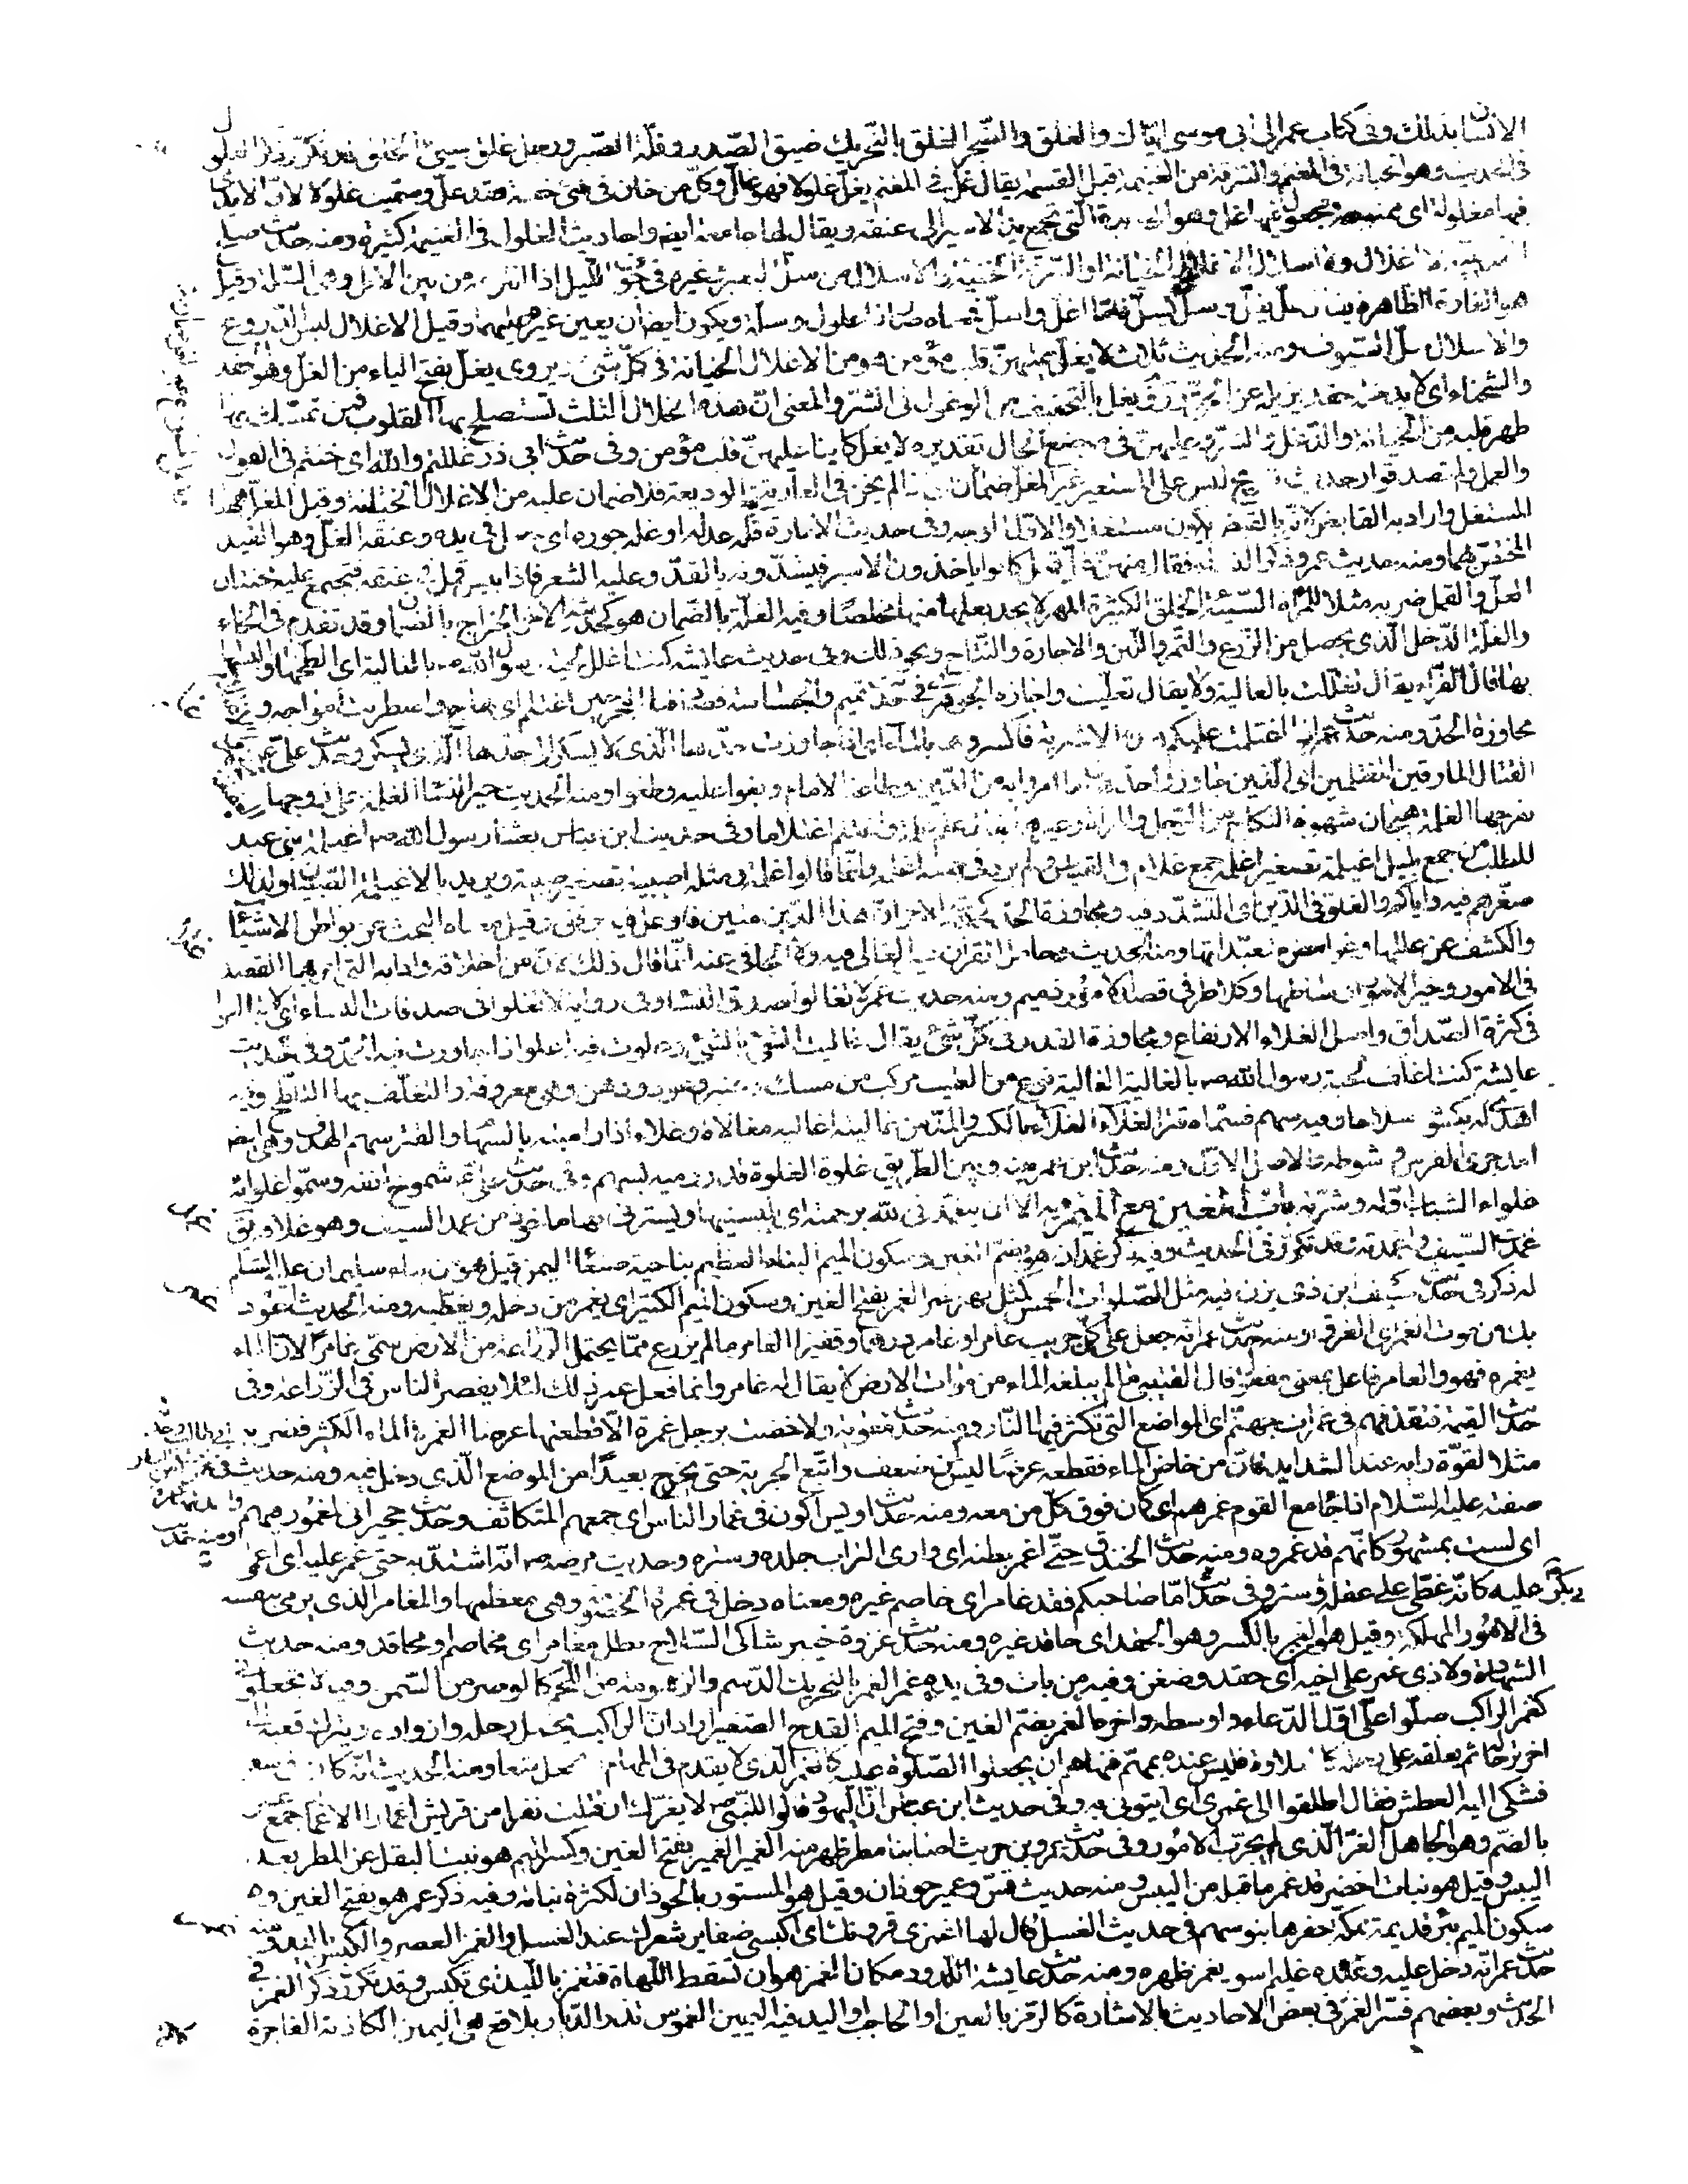 الانسا بذلك وفي كتاب عمر الى ابي موسى اياك والغلق والضجر الغلق بالتحريك ضيق الصدر وقلة الصبر ورجل غلق سيئ الخلق قد تكرر ذكر الغلول
في الحديث وهو الخيانة في المغنم والسرقة من الغنيمة قبل القسمة يقال غل في المغنم يغل غلولا فهو غال وكل من خان في شئ خفية فقد غل وسميت غلولا لان الايدي
فيها مغلولة اى ممنوعة مجعول فيها غل وهو الحديدة التي تجمع يد الاسير الى عنقه ويقال لها جامعة ايضا واحاديث الغلول في الغنيمة كثيرة ومنه حديث صلح
الحديبية لا اغلال ولا اسلال الاغلال الخيانة او السرقة الخفية والاسلال من سل البعير وغيره في جوف الليل اذا انتزعه من بين الابل وهي السلة وقيل
هو الغارة الظاهرة يقال غل يغل وسل يسل فاما اغل واسل فمعناه صار ذا غلول وسلة ويكون ايضا ان يعين غيره عليهما وقيل الاغلال لبس الدروع
والاسلال سل السيوف ومنه الحديث ثلاث لا يغل عليهن قلب مؤمن هو من الاغلال الخيانة في كل شئ ويروى يغل بفتح الياء من الغل وهو الحقد
والشحناء اى لا يدخله حقد يزيله عن الحق وروى يغل بالتخفيف من الوغول في الشر والمعنى ان هذه الخلال الثلث تستصلح بها القلوب فمن تمسك بها
طهر قلبه من الخيانة والدغل والشر وعليهن في موضع الحال تقديره لا يغل كاينا عليهن قلب مؤمن وفي حديث ابي ذر غللتم والله اى خنتم في القول
والعمل ولم تصدقوا وحديث شريح ليس على المستعير غير المغل ضمان اى اذا لم يخن في العارية والوديعة فلا ضمان عليه من الاغلال الخيانة وقيل المغل ههنا
المستغل واراد به القابض لانه بالقبض يكون مستغلا والاول اوجه وفي حديث الامارة فكه عدله او غله جوره اى جعل في يده وعنقه الغل وهو القيد
المختص بهما ومنه حديث عمر وذكر النساء فقال منهن غل قمل كانوا ياخذون الاسير فيشدونه بالقد وعليه الشعر فاذا يبس قمل في عنقه فتجتمع عليه محنتان
الغل والقمل ضربه مثلا للمرأة السيئة الخلق الكثيرة المهر لا يجد بعلها منها مخلصا وفيه الغلة بالضمان هو كحديثه الاخر الخراج بالضمان وقد تقدم في الخاء
والغلة الدخل الذي يحصل من الزرع والثمر واللبن والاجارة والنتاج ونحو ذلك وفي حديث عايشة كنت اغلل لحية رسول الله ص بالغالية اى الطخها والبسها
بها قال الفراء يقال تغللت بالغالية ولا يقال تغليت واجازه الجوهري في حديث تميم والجساسة فصادفنا البحر حين اغتلم اى هاج واضطربت امواجه و
مجاوزة الحد ومنه حديث عمر اذا اغتلمت عليكم هذه الاشربة فاكسروها بالماء اى اذا جاوزت حدها الذي لا يسكر الى حدها الذي يسكر وحديث علي
القتال المارقين المغتلمين اى الذين تجاوزوا حد ما امروا به من الدين وطاعة الامام وبغوا عليه وطغوا ومنه الحديث خير النساء الغلمة على زوجها
بفرجها الغلمة هيجان شهوة النكاح من الرجل والمرأة وغيرهما يقال غلم غلمة واغتلم اغتلاما وفي حديث ابن عباس بعثنا رسول الله ص اغيلمة بني عبد
المطلب من جمع بليل اغيلمة تصغير اغلمة جمع غلام في القياس ولم يرد في جمعه اغلمة وانما قالوا غلمة ومثله اصيبية تصغير صبية ويريد بالاغيلمة الصبيان ولذلك
صغرهم فيه واياكم والغلو في الدين اى التشدد فيه ومجاوزة الحد كحديثه الاخر ان هذا الدين متين فاوغل فيه برفق وقيل معناه البحث عن بواطن الاشياء
والكشف عن عللها وغوامض متعبداتها ومنه الحديث وحامل القران غير الغالي فيه ولا الجافي عنه انما قال ذلك لان من اخلاقه وادابه التي امر بها القصد
في الامور وخير الامور اوساطها وكلا طرفي قصد الامور ذميم ومنه حديث عمر لا تغالوا صدق النساء وفي رواية لا تغلوا في صدقات النساء اى لا تبالغوا
في كثرة الصداق واصل الغلاء الارتفاع ومجاوزة القدر في كل شئ يقال غاليت الشئ وبالشئ وغلوت فيه اغلوا اذا جاوزت فيه الحد وفي حديث
عايشة كنت اغلف لحية رسول الله ص بالغالية الغالية نوع من الطيب مركب من مسك وعنبر وعود ودهن وهي معروفة والتغلف بها التلطخ وفيه
اهدى له يكسوم سلاحا وفيه سهم فسماه قتر الغلاء الغلاء بالكسر والمد من غاليته اغاليه مغالاة وغلاء اذا راميته بالسهام والقتر سهم الهدف وهي ايضا
امد جري الفرس وشوطه والاصل الاول ومنه حديث ابن عمر بينه وبين الطريق غلوة الغلوة قدر رمية بسهم وفي حديث علي ع شموخ انفه وسمو غلوائه
غلواء الشباب اوله وشرته باب الغين مع الميم وفيه الا ان يتغمدني الله برحمته اى يلبسنيها ويسترني بها ماخوذ من غمد السيف وهو غلافه يق
غمدت السيف واغمدته وقد تكرر في الحديث وفيه ذكر غمدان هو بضم الغين وسكون الميم البناء العظيم بناحية صنعاء اليمن قيل هو من بناء سليمان عليه السلام
له ذكر في حديث سيف بن ذي يزن فيه مثل الصلوات الخمس كمثل نهر غمر الغمر بفتح الغين وسكون الميم الكثير اى يغمر من دخله ويغطيه ومنه الحديث اعوذ
بك من موت الغمر اى الغرق ومنه حديث عمر انه جعل على كل جريب عامر او غامر درهما وقفيزا الغامر ما لم يزرع مما يحتمل الزراعة من الارض سمي غامرا لان الماء
يغمره فهو والغامر فاعل بمعنى مفعول قال القتيبي ما لا يبلغه الماء من موات الارض لا يقال له غامر وانما فعل عمر ذلك لئلا يقصر الناس في الزراعة وفي
حديث القيمة فتقذفهم في غمرات جهنم اى المواضع التي تكثر فيها النار ومنه حديث معوية ولا خضت برجل غمرة الا قطعتها عرضا الغمرة الماء الكثير فضربه
مثلا لقوة رايه عند الشدايد فان من خاض الماء فقطعه عرضا ليس كمن ضعف واتبع الجرية حتى يخرج بعيدا من الموضع الذي دخل فيه ومنه حديث
صفته عليه السلام اذا جامع القوم غمرهم اى كان فوق كل من معه ومنه حديث اويس اكون في غمار الناس اى جمعهم المتكاثف وحديث حجير اني لمغمور فيهم
اى لست بمشهور كانهم قد غمروه ومنه حديث الخندق حتى اغمر بطنه اى وارى التراب جلده وستره وحديث مرضه ص انه اشتد به حتى غمر عليه اى اغمى
عليه كانه غطي على عقله وستر وفي حديث اما صاحبكم فقد غامر اى خاصم غيره ومعناه دخل في غمرة الخصومة وهي معظمها والمغامر الذي يرمي بنفسه
في الامور المهلكة وقيل هو من الغمر بالكسر وهو الحقد اى حاقد غيره ومنه حديث غزوة خيبر شاكي السلاح بطل مغامر اى مخاصم او محاقد ومنه حديث
الشهادة ولا ذي غمر على اخيه اى حقد وضغن وفيه من بات وفي يده غمر الغمر بالتحريك الدسم والزهومة من اللحم كالوضر من السمن وفيه لا تجعلوني
كغمر الراكب صلوا علي اول الدعاء واوسطه واخره الغمر بضم الغين وفتح الميم القدح الصغير اراد ان الراكب يحمل رحله وازواده ويترك قعبه الى
اخر ترحاله ثم يعلقه على رحله كالعلاوة فليس عنده بمهم فنهاهم ان يجعلوا الصلوة عليه كالغمر الذي لا يقدم في المهام ويجعل تبعا ومنه الحديث انه كان في سفر
فشكى اليه العطش فقال اطلقوا الى غمري اى ايتوني به وفي حديث ابن عباس ان اليهود قالوا للنبي ص لا يغرك ان قتلت نفرا من قريش اغمارا الاغمار جمع غمر
بالضم وهو الجاهل الغر الذي لم يجرب الامور وفي حديث عمرو بن حريث اصابنا مطر ظهر منه الغمير الغمير بفتح الغين وكسر الميم هو نبت البقل عن المطر بعد
اليبس وقيل هو نبات اخضر قد غمر ما قبله من اليبس ومنه حديث قس وغمير حوذان وقيل هو المستور بالحوذان لكثرة نباته وفيه ذكر غمر هو بفتح الغين و
سكون الميم بئر قديمة بمكة حفرها بنو سهم في حديث الغسل قال لها اغمزي قرونك اى اكبسي ضفاير شعرك عند الغسل والغمز العصر والكبس باليد ومنه
حديث عمر انه دخل عليه وعنده غليم اسود يغمز ظهره ومنه حديث عايشة اللدود مكان الغمز هو ان تسقط اللهاة فتغمز باليد اى تكبس وقد تكرر ذكر الغمز في
الحديث وبعضهم فسر الغمز في بعض الاحاديث بالاشارة كالرمز بالعين او الحاجب او اليد فيه اليمين الغموس تذر الديار بلاقع هي اليمين الكاذبة الفاجرة